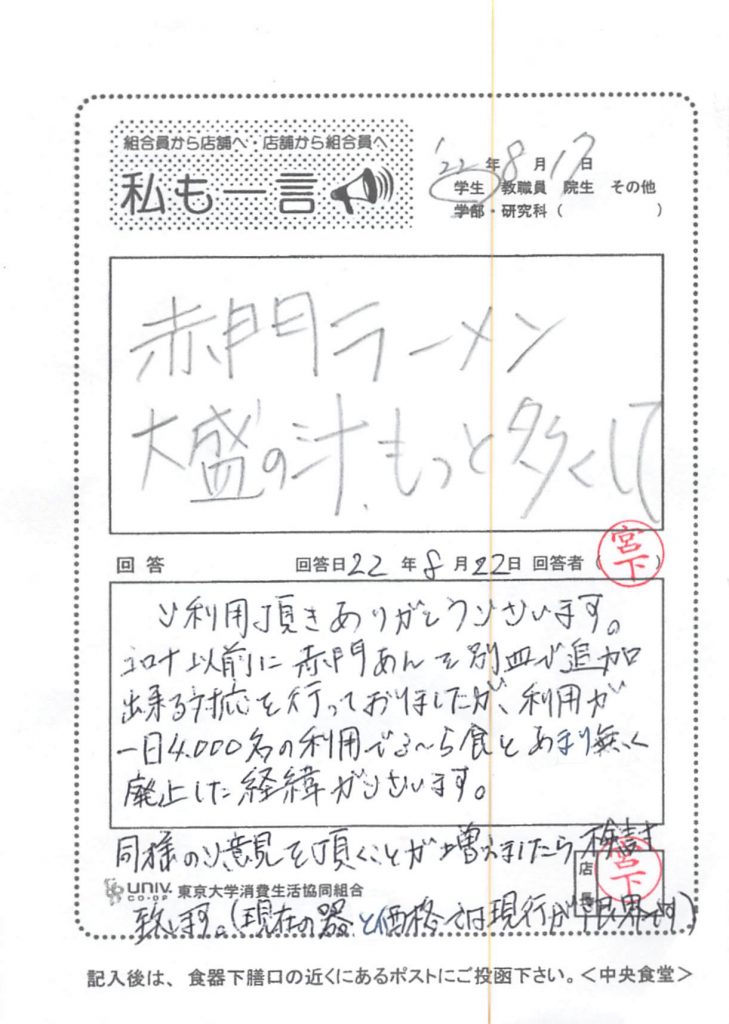 組合員から店舗へ・店舗から組合員へ
私も一言
'22年8月17日
学生 教職員 院生 その他
学部・研究科（ ）
赤門ラーメン
大盛の汁、もっと多くして
回答 回答日22年8月22日 回答者（宮下）
ご利用頂きありがとうございます。
コロナ以前に赤門あんを別皿で追加
出来る対応を行っておりましたが、利用が
一日4.000名の利用で3〜5食とあまり無く
廃止した経緯がございます。
同様のご意見を頂くことが増えましたら検討
店長 宮下
UNIV. CO-OP 東京大学消費生活協同組合
致します。(現在の器と価格では現行が限界です)
記入後は、食器下膳口の近くにあるポストにご投函下さい。＜中央食堂＞